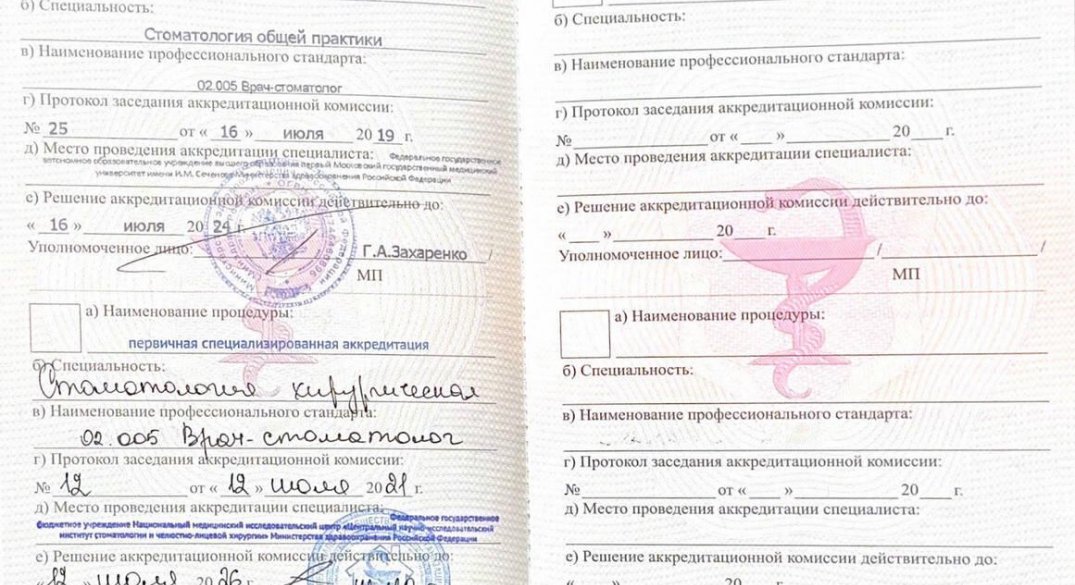 б) Специальность:
Стоматология общей практики
в) Наименование профессионального стандарта:
02.005 Врач-стоматолог
г) Протокол заседания аккредитационной комиссии:
№ 25 от « 16 » июля 20 19 г.
д) Место проведения аккредитации специалиста: Федеральное государственное
автономное образовательное учреждение высшего образования Первый Московский государственный медицинский
университет имени И.М. Сеченова Министерства здравоохранения Российской Федерации
е) Решение аккредитационной комиссии действительно до:
« 16 » июля 20 24 г.
Уполномоченное лицо: Г.А.Захаренко /
МП
а) Наименование процедуры:
первичная специализированная аккредитация
б) Специальность:
Стоматология хирургическая
в) Наименование профессионального стандарта:
02.005 Врач-стоматолог
г) Протокол заседания аккредитационной комиссии:
№ 12 от « 12 » июля 20 21 г.
д) Место проведения аккредитации специалиста: Федеральное государственное
бюджетное учреждение Национальный медицинский исследовательский центр «Центральный научно-исследовательский
институт стоматологии и челюстно-лицевой хирургии» Министерства здравоохранения Российской Федерации
е) Решение аккредитационной комиссии действительно до:
«12 » июля 20 26 г.
б) Специальность:
в) Наименование профессионального стандарта:
г) Протокол заседания аккредитационной комиссии:
№ от « » 20 г.
д) Место проведения аккредитации специалиста:
е) Решение аккредитационной комиссии действительно до:
« » 20 г.
Уполномоченное лицо: / /
МП
а) Наименование процедуры:
б) Специальность:
в) Наименование профессионального стандарта:
г) Протокол заседания аккредитационной комиссии:
№ от « » 20 г.
д) Место проведения аккредитации специалиста:
е) Решение аккредитационной комиссии действительно до:
« » 20 г.